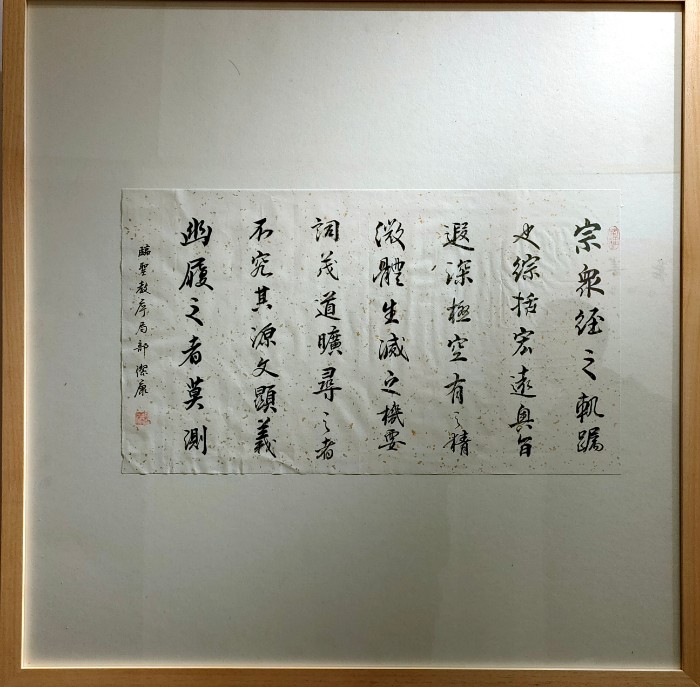 宗衆經之軌躅
也綜括宏遠奧旨
遐深極空有之精
微體生滅之機要
詞茂道曠尋之者
不究其源文顯義
幽履之者莫測
臨聖教序局部 潔康